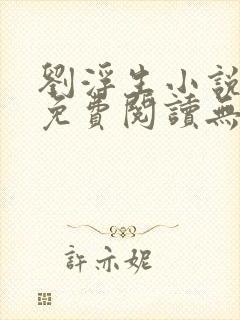 劉浮生小說
免費閱讀無
許亦妮